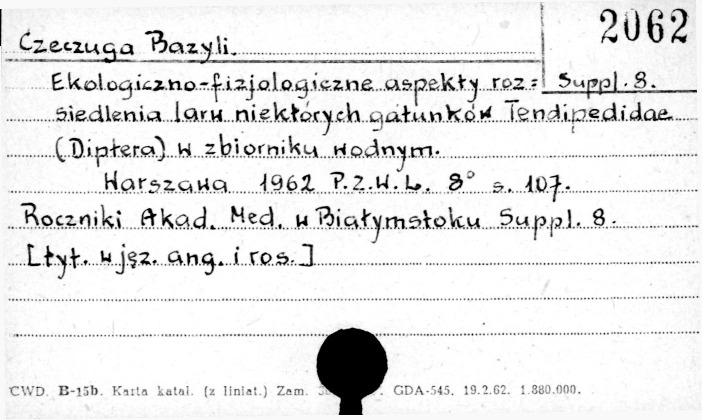 2062
Czeczuga Bazyli.
Ekologiczno-fizjologiczne aspekty roz= Suppl. 8.
siedlenia larw niektórych gatunków Tendipedidae
(Diptera) w zbiorniku wodnym.
Warszawa 1962 P.Z.W.L. 8° s. 107.
Roczniki Akad. Med. w Białymstoku Suppl. 8.
[tyt. w jęz. ang. i ros.]
CWD. B-15b. Karta katal. (z liniat.) Zam. GDA-545. 19.2.62. 1.880.000.